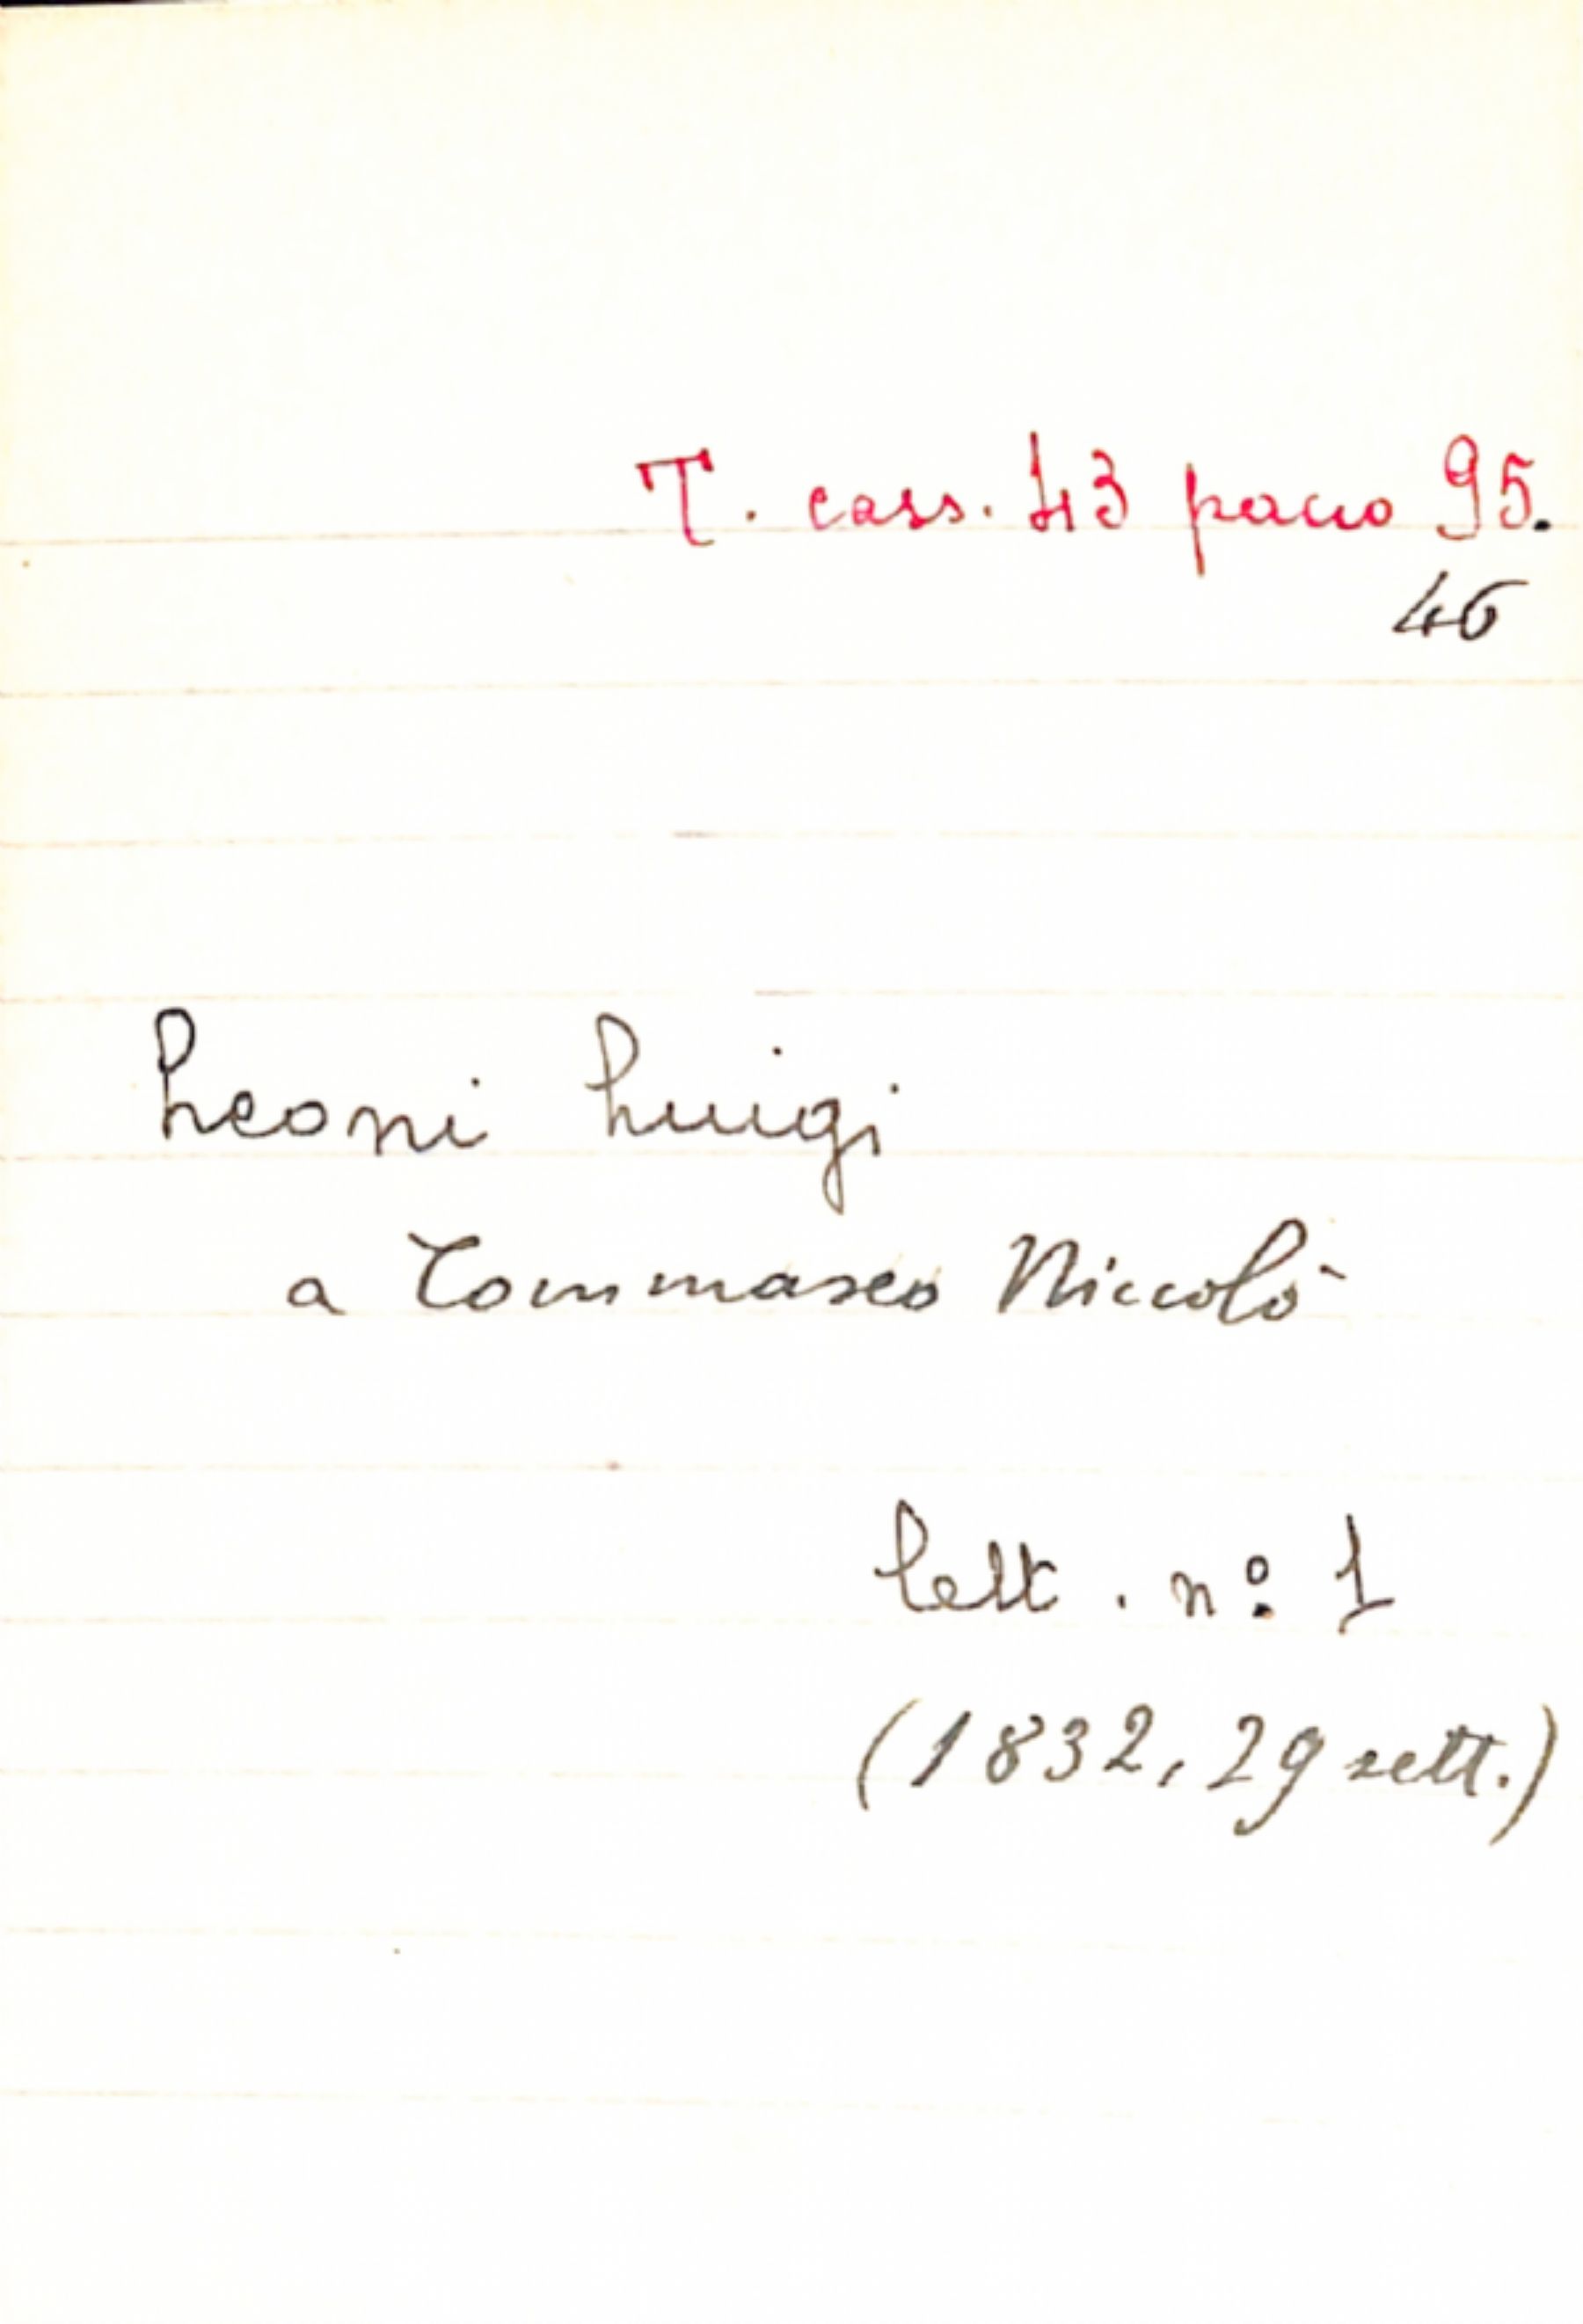 T. cass. 43 pacco 95.
46
Leoni Luigi
a Tommaseo Niccolò
lett. nº 1
(1832, 29 sett.)